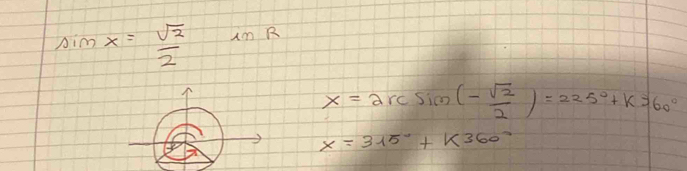 sin x = √2/2 in R
x = arcsin(-√2/2) = 225° + K360°
x = 315° + K360°